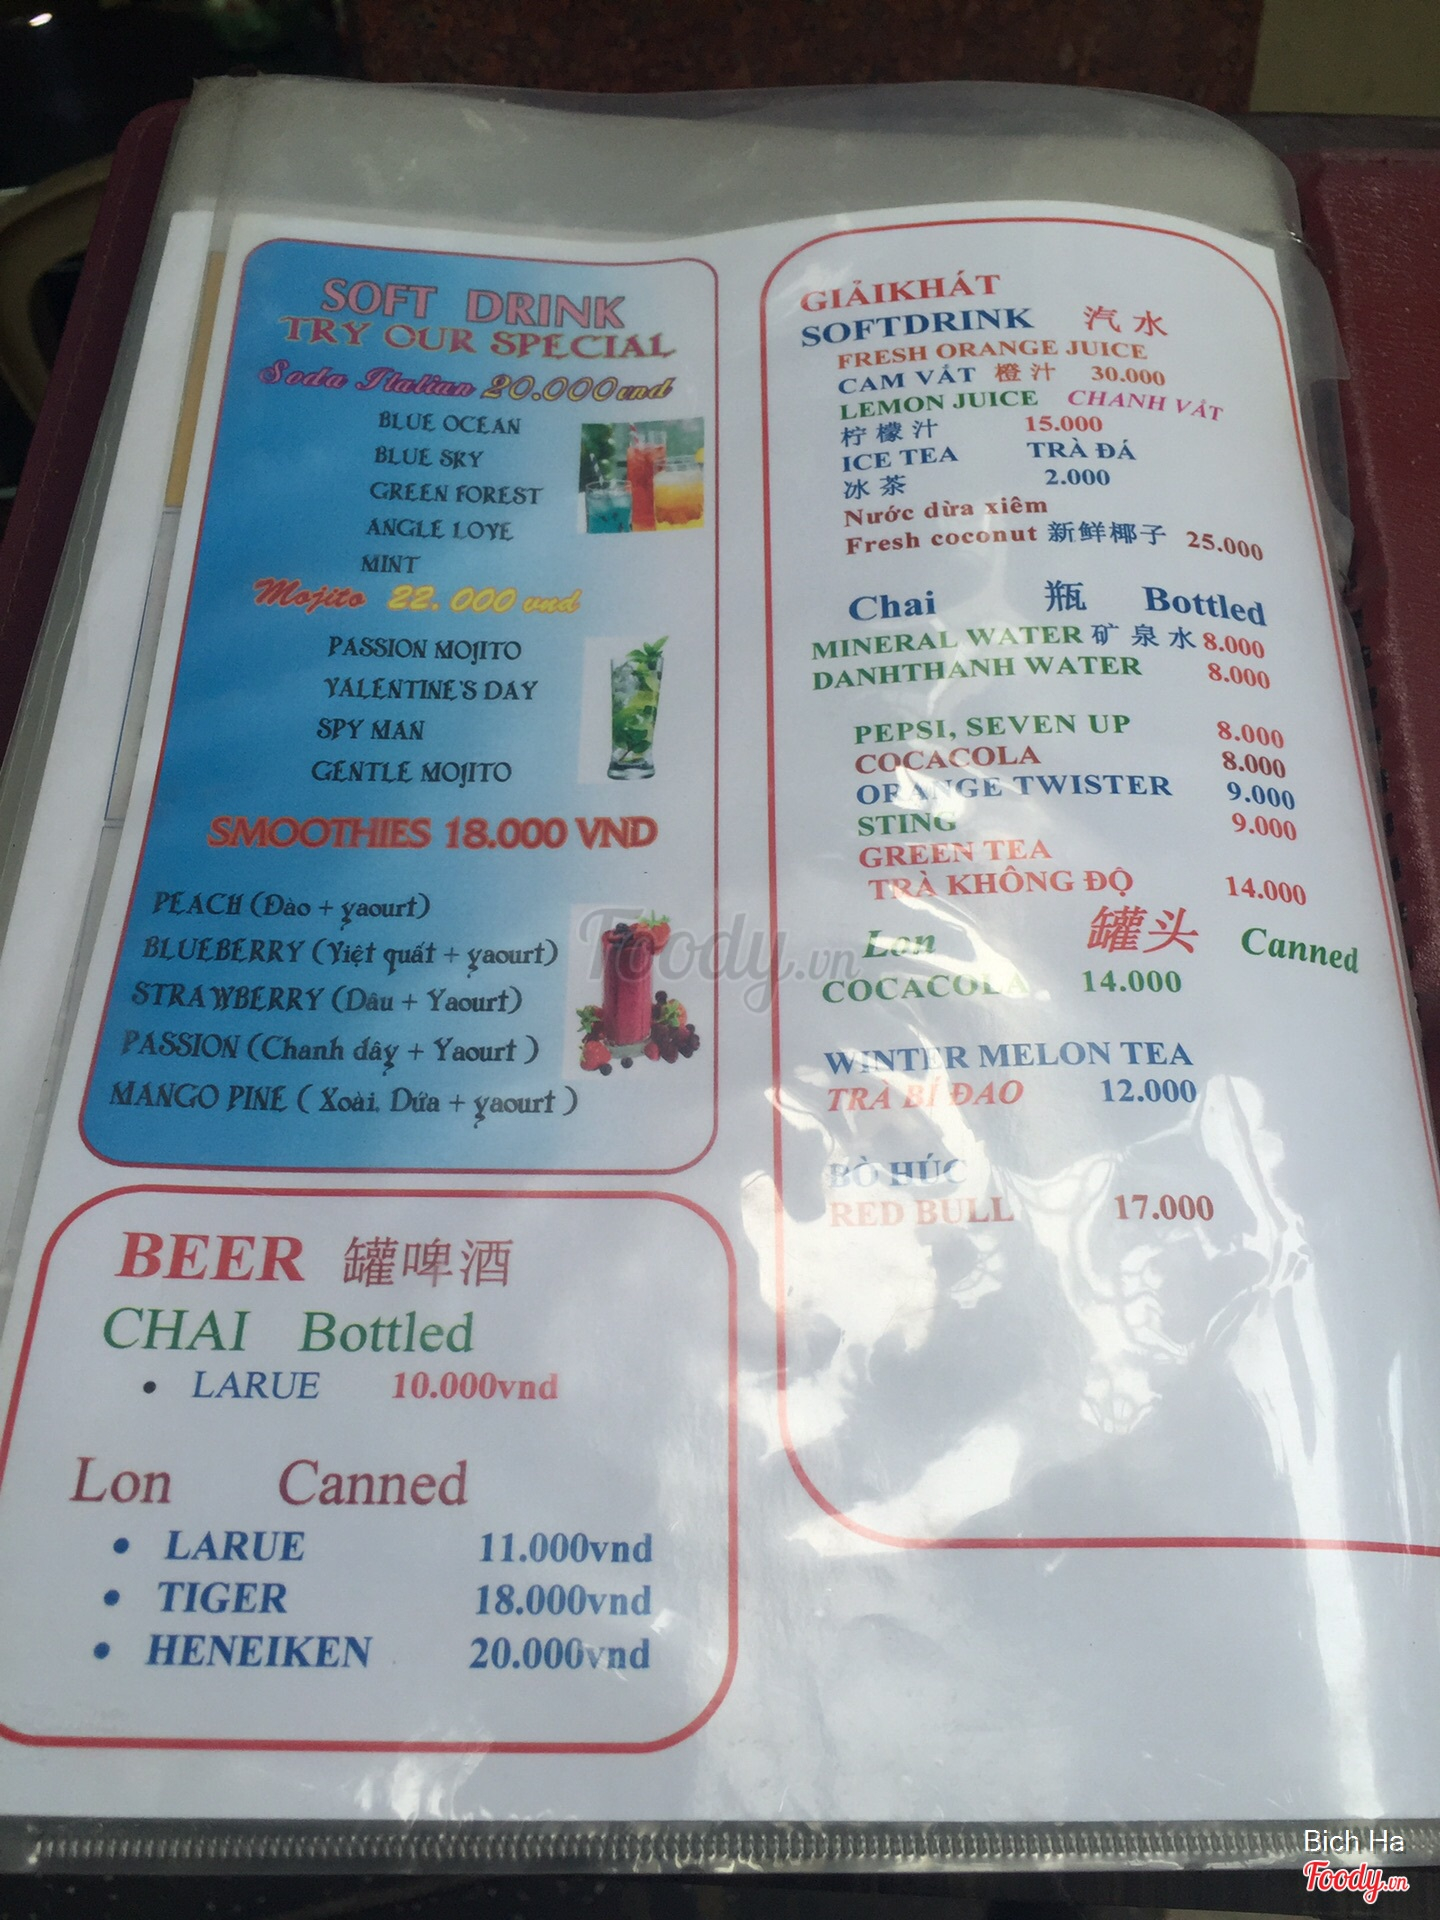 SOFT DRINK
TRY OUR SPECIAL
Soda Italian 20.000vnd
BLUE OCEAN
BLUE SKY
GREEN FOREST
ANGLE LOVE
MINT
Mojito 22.000 vnd
PASSION MOJITO
VALENTINE'S DAY
SPY MAN
GENTLE MOJITO
SMOOTHIES 18.000 VND
PEACH (Đào + yaourt)
BLUEBERRY (Việt quất + yaourt)
STRAWBERRY (Dâu + Yaourt)
PASSION (Chanh dây + Yaourt )
MANGO PINE ( Xoài, Dứa + yaourt )
BEER 罐啤酒
CHAI Bottled
• LARUE 10.000vnd
Lon Canned
• LARUE 11.000vnd
• TIGER 18.000vnd
• HENEIKEN 20.000vnd
GIẢIKHÁT
SOFTDRINK 汽水
FRESH ORANGE JUICE
CAM VẮT 橙汁 30.000
LEMON JUICE CHANH VẮT
柠檬汁 15.000
ICE TEA TRÀ ĐÁ
冰茶 2.000
Nước dừa xiêm
Fresh coconut 新鲜椰子 25.000
Chai 瓶 Bottled
MINERAL WATER 矿泉水 8.000
DANHTHANH WATER 8.000
PEPSI, SEVEN UP 8.000
COCACOLA 8.000
ORANGE TWISTER 9.000
STING 9.000
GREEN TEA
TRÀ KHÔNG ĐỘ 14.000
Lon 罐头 Canned
COCACOLA 14.000
WINTER MELON TEA
TRÀ BÍ ĐAO 12.000
BÒ HÚC
RED BULL 17.000
Foody.vn
Bich Ha
Foody.vn